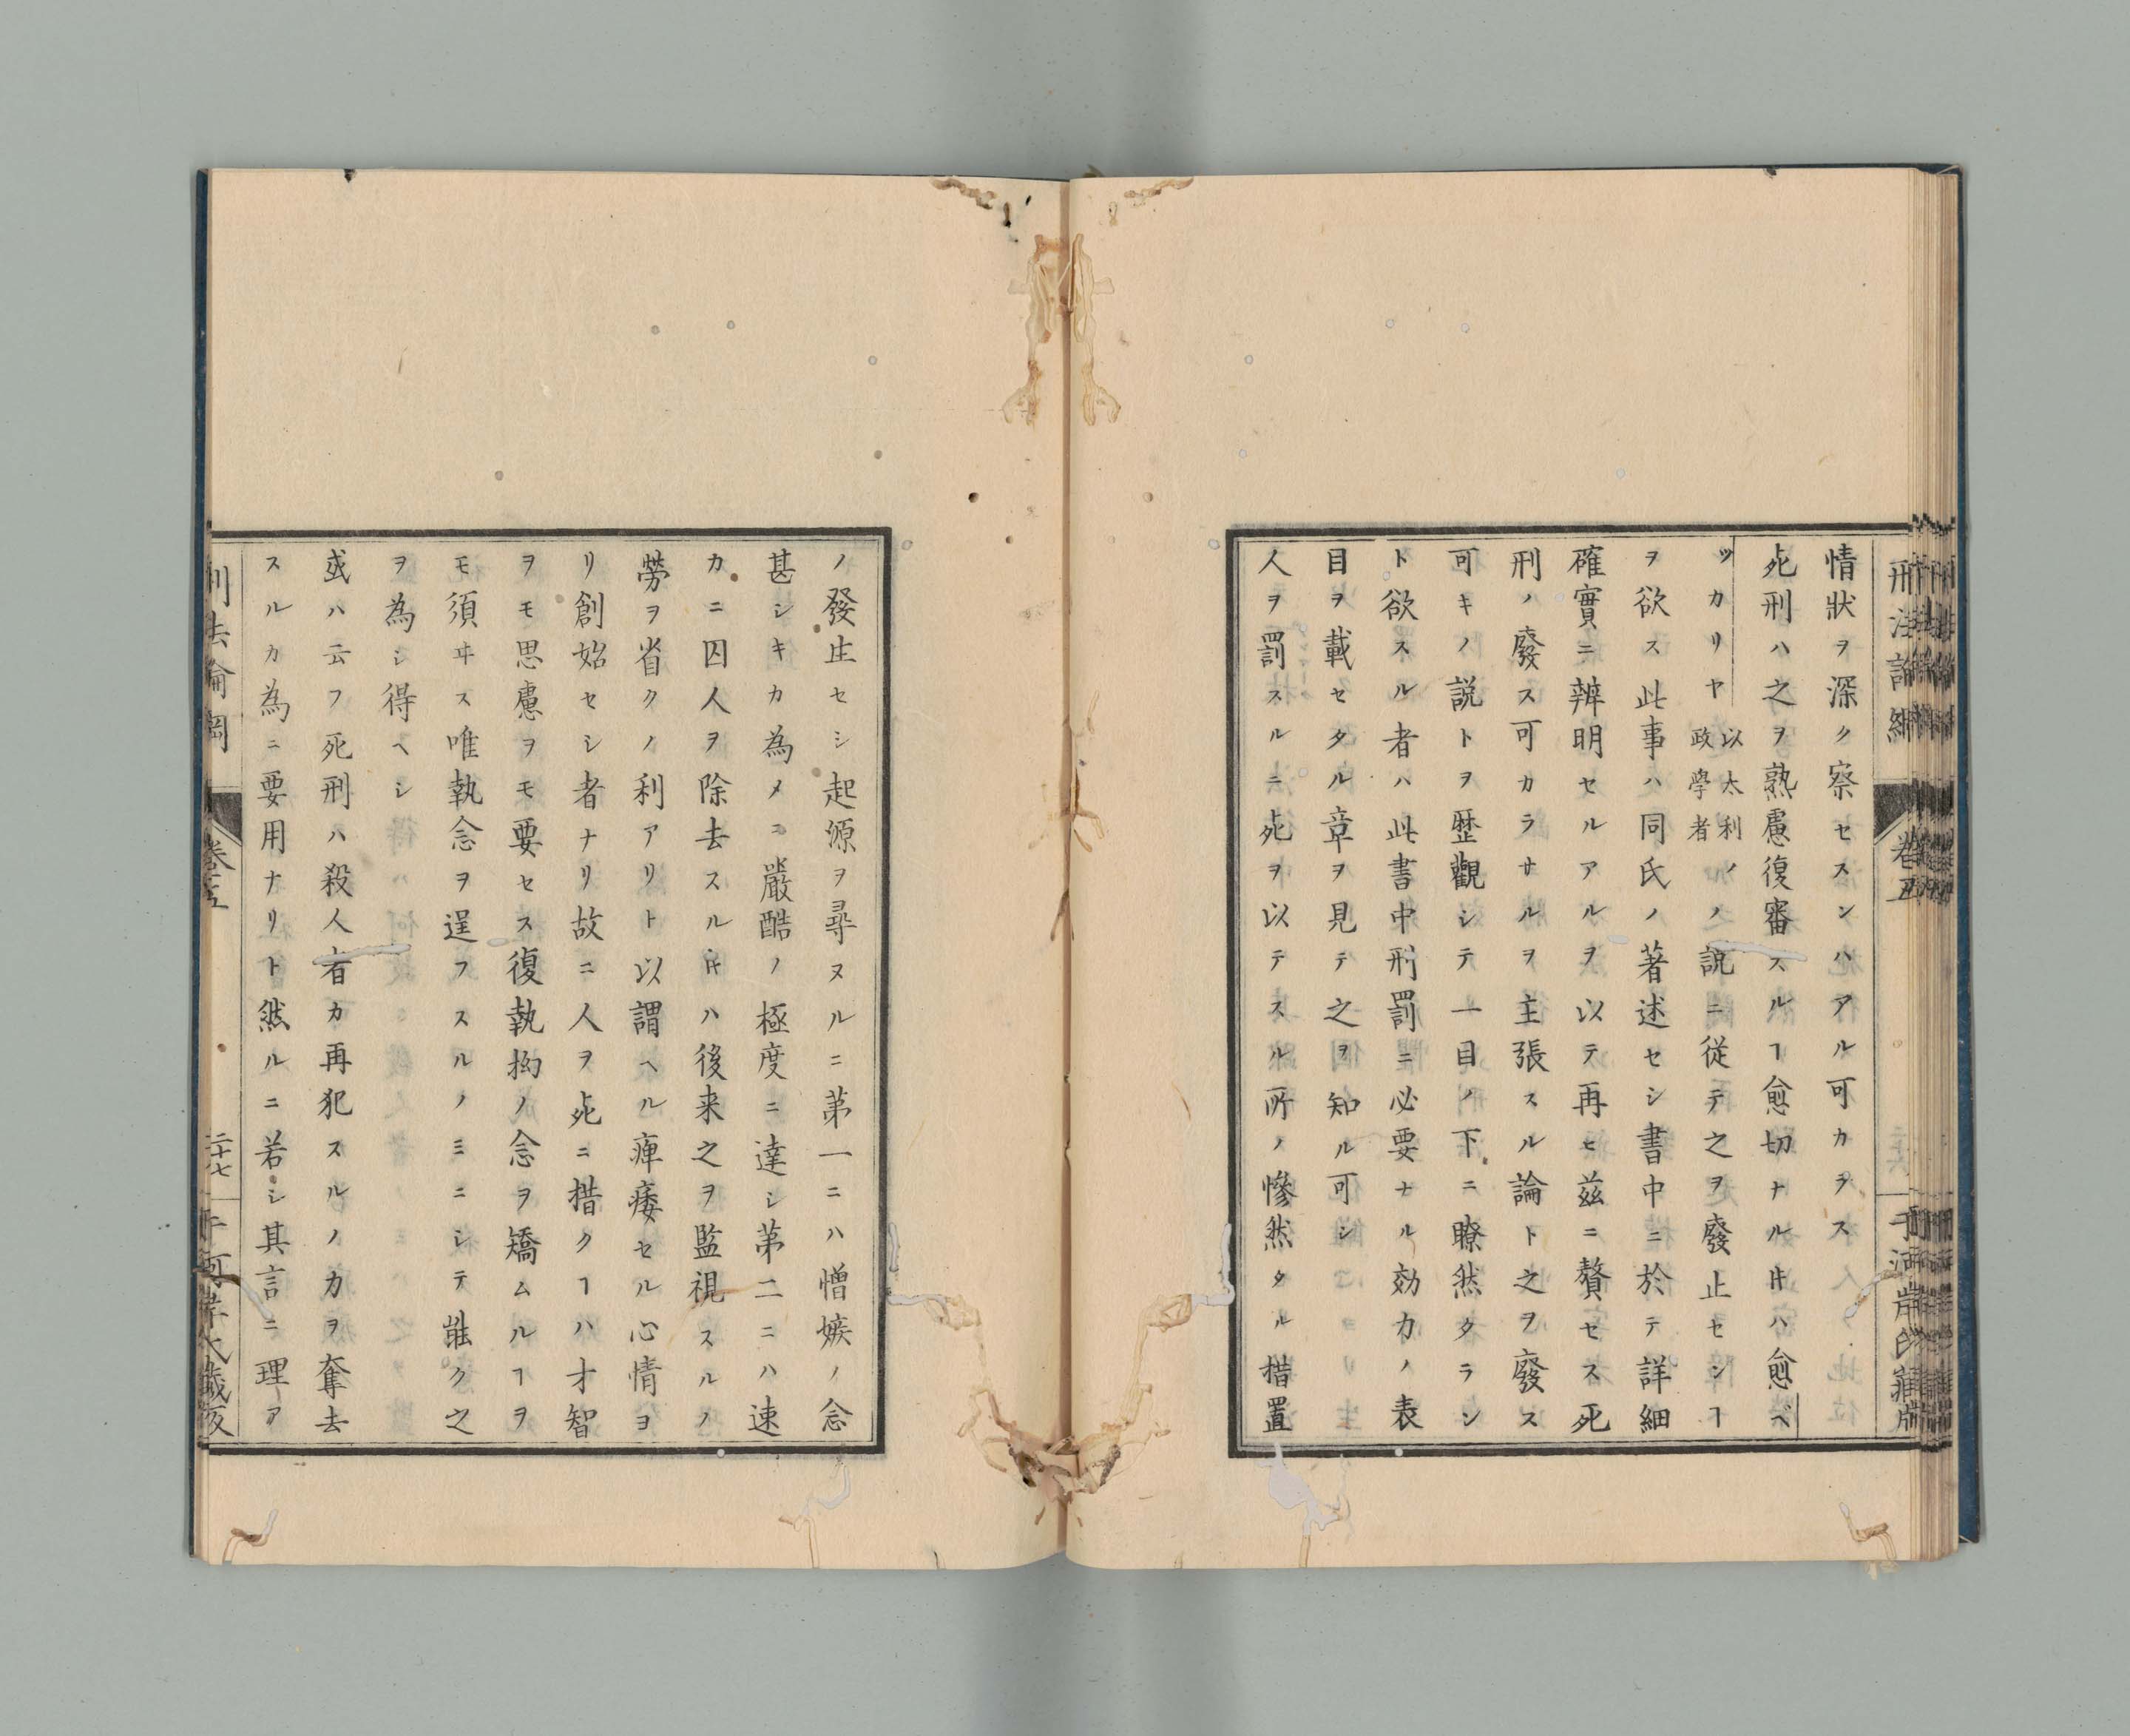 刑法論綱 卷五 于河岸氏藏版
情狀ヲ深ク察セスンハアル可カラス
死刑ハ之ヲ熟慮復審スルヿ愈切ナルキハ愈ベ
ツカリヤ以太利ノ政學者ノ説ニ從テ之ヲ廢止セシヿ
ヲ欲ス此事ハ同氏ノ著述セシ書中ニ於テ詳細
確實ニ辨明セルアルヲ以テ再ヒ茲ニ贅セス死
刑ノ廢ス可カラサルヲ主張スル論ト之ヲ廢ス
可キノ説トヲ歴觀シテ一目ノ下ニ瞭然タラン
ト欲スル者ハ此書中刑罰ニ必要ナル効力ノ表
目ヲ載セタル章ヲ見テ之ヲ知ル可シ
人ヲ罰スルニ死ヲ以テスル所ノ慘然タル措置
ノ發生セシ起源ヲ尋ヌルニ第一ニハ憎嫉ノ念
甚シキカ為メニ嚴酷ノ極度ニ達シ第二ニハ速
カニ囚人ヲ除去スル𪜈ハ後来之ヲ監視スルノ
勞ヲ省クノ利アリト以謂ヘル痺痿セル心情ヨ
リ創始セシ者ナリ故ニ人ヲ死ニ措クヿハ才智
ヲモ思慮ヲモ要セス復執拗ノ念ヲ矯ムルヿヲ
モ須ヰス唯執念ヲ逞フスルノミニシテ誰ク之
ヲ為シ得ヘシ
或ハ云フ死刑ハ殺人者カ再犯スルノカヲ奪去
スルカ為ニ要用ナリト然ルニ若シ其言ニ理ア
刑法論綱 卷五 二十七 于河岸氏藏版